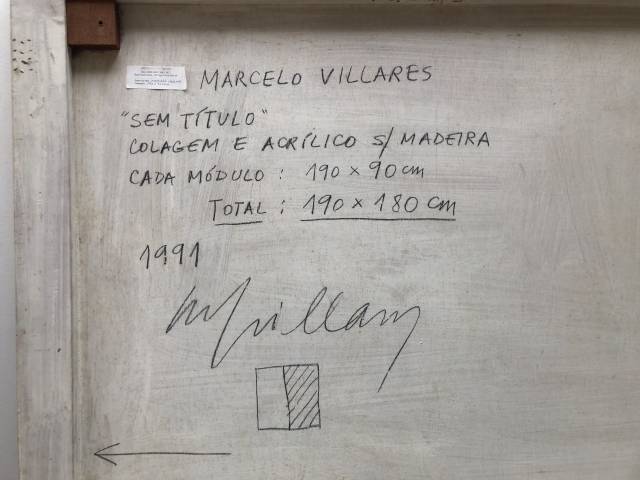 MARCELO VILLARES
"SEM TÍTULO"
COLAGEM E ACRÍLICO S/ MADEIRA
CADA MÓDULO : 190 × 90 cm
TOTAL : 190 × 180 cm
1991